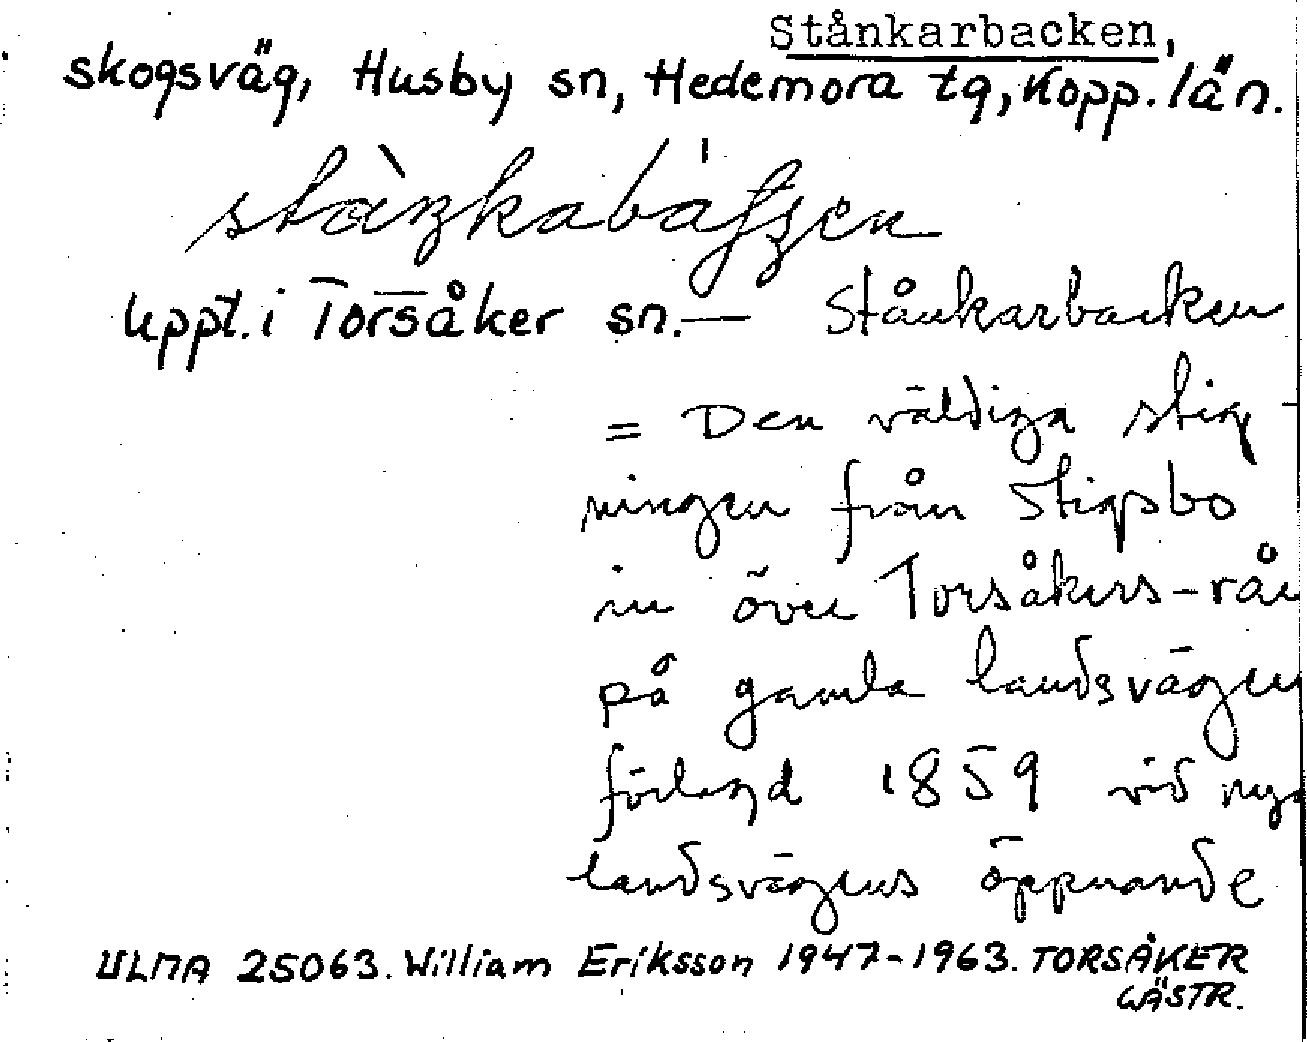 Stånkarbacken,
skogsväg, Husby sn, Hedemora tg, Kopp. län.
Uppt. i Torsåker sn. — Stånkarbacken
= Den väldiga stig-
ningen från Stigsbo
in över Torsåkers-rån
på gamla landsvägen
förlagd 1859 vid nya
landsvägens öppnande
ULMA 25063. William Eriksson 1947-1963. TORSÅKER
GÄSTR.